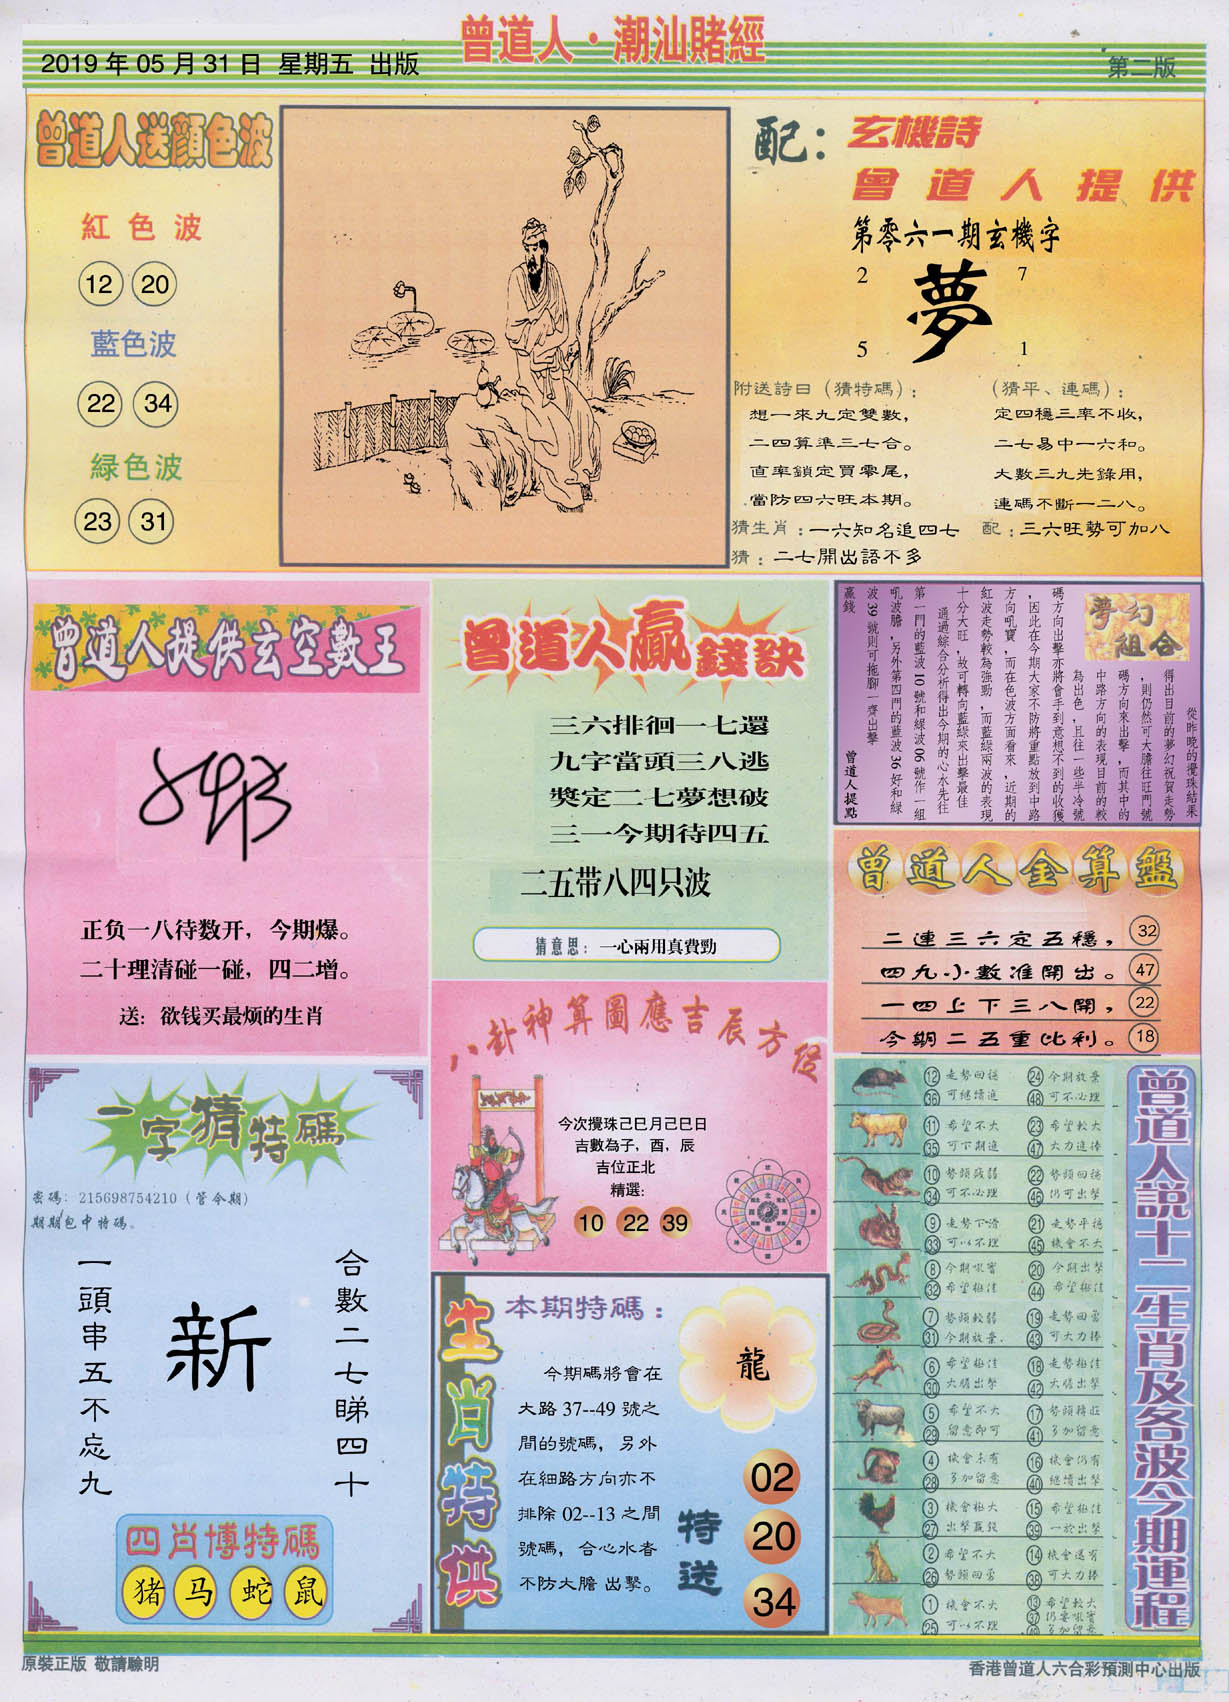 曾道人·潮汕賭經
2019 年 05 月 31 日 星期五 出版
第二版
曾道人送顏色波
紅色波
12 20
藍色波
22 34
緑色波
23 31
配：玄機詩
曾道人提供
第零六一期玄機字
2 7
夢
5 1
附送詩曰（猜特碼）：
想一來九定雙數，
二四算準三七合。
直率鎖定買零尾，
當防四六旺本期。
（猜平、連碼）：
定四穩三率不收，
二七易中一六和。
大數三九先錄用，
連碼不斷一二八。
猜生肖：一六知名追四七
配：三六旺勢可加八
猜：二七開出語不多
曾道人提供玄空數王
正负一八待数开，今期爆。
二十理清碰一碰，四二增。
送：欲钱买最烦的生肖
曾道人贏錢訣
三六排徊一七還
九字當頭三八逃
獎定二七夢想破
三一今期待四五
二五带八四只波
猜意思：一心兩用真費勁
夢幻組合
從昨晚的攪珠結果
得出目前的夢幻祝賀走勢
，則仍然可大膽往旺門號
碼方向來出擊，而其中的
中路方向的表現目前的較
為出色，且往一些半冷號
碼方向出擊亦將會手到意想不到的收獲
，因此在今期大家不防將重點放到中路
方向吼寶，而在色波方面看來，近期的
紅波走勢較為強勁，而藍綠兩波的表現
十分大旺，故可轉向藍綠來出擊最佳
通過綜合分析得出今期的心水先往
第一門的藍波 10 號和緑波 06 號作一組
吼波膽，另外第四門的藍波 36 好和緑
波 39 號則可拖腳一齊出擊
贏錢
曾道人提點
曾道人金算盤
二連三六定五穩， 32
四九小數准開出。 47
一四上下三八開， 22
今期二五重比利。 18
八卦神算圖應吉辰方位
今次攪珠己巳月己巳日
吉數為子，酉，辰
吉位正北
精選：
10 22 39
一字猜特碼
密碼：215698754210（管今期）
期期包中特碼。
合數二七睇四十
新
一頭串五不忘九
四肖博特碼
猪 马 蛇 鼠
生肖特供
本期特碼：
龍
今期碼將會在
大路 37--49 號之
間的號碼，另外
在細路方向亦不
排除 02--13 之間
號碼，合心水者
不防大膽 出擊。
特送
02
20
34
曾道人説十二生肖及各波今期運程
12 走勢回穩 24 今期放棄
36 可繼續追 48 可不必理
11 希望不大 23 希望較大
35 可下期追 47 大力追捧
10 勢頭減弱 22 勢頭回穩
34 可不必理 46 仍可出擊
9 走勢下滑 21 走勢平穩
33 可以不理 45 機會不大
8 今期吼實 20 今期出擊
32 希望極佳 44 希望極佳
7 勢頭較弱 19 走勢回勇
31 今期放棄. 43 可大力捧
6 希望極佳 18 走勢極佳
30 大膽出擊 42 大膽出擊
5 希望不大 17 勢頭轉旺
29 留意即可 41 多加留意
4 機會未有 16 機會仍有
28 多加留意 40 繼續出擊
3 機會極大 15 希望極佳
27 出擊贏錢 39 一於出擊
2 希望不大 14 機會還有
26 勢頭回勇 38 可大力捧
1 機會不大 13 希望較大
25 可以不理 37 仍要吼實
49 多加留意
原裝正版 敬請驗明
香港曾道人六合彩預測中心出版